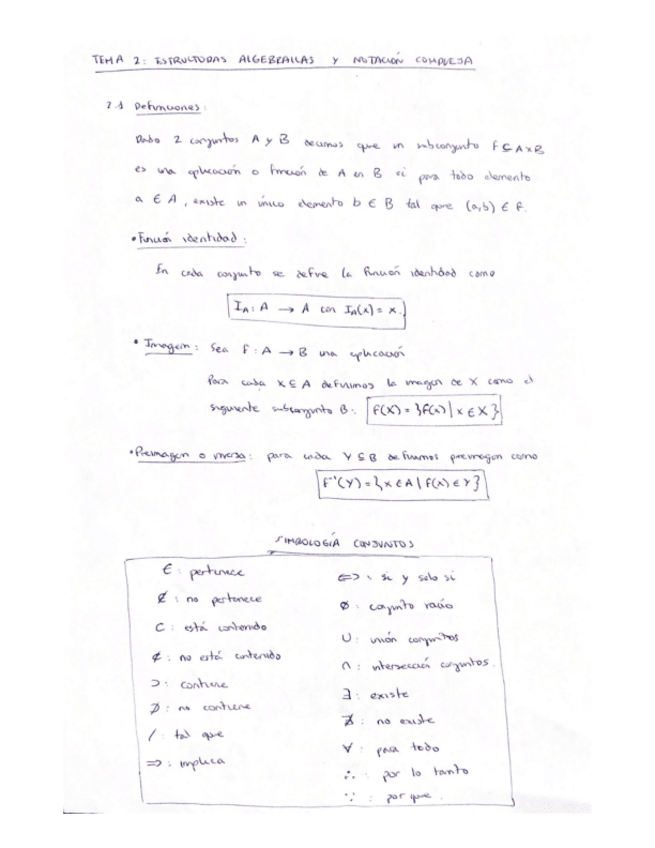 TEMA 2: ESTRUCTURAS ALGEBRAICAS Y NOTACIÓN COMPLEJA
2.1 Definiciones:
Dado 2 conjuntos A y B decimos que un subconjunto f ⊆ A×B
es una aplicación o función de A en B si para todo elemento
a ∈ A, existe un único elemento b ∈ B tal que (a,b) ∈ f.
• Función identidad:
En cada conjunto se define la función identidad como
I_A: A → A con I_A(x) = x.
• Imagen: Sea f: A → B una aplicación
Para cada X ⊆ A definimos la imagen de X como el
siguiente subconjunto B: f(X) = {f(x) | x ∈ X}
• Preimagen o inversa: para cada Y ⊆ B definimos preimagen como
f⁻¹(Y) = {x ∈ A | f(x) ∈ Y}
SIMBOLOGÍA CONJUNTOS
∈: pertenece
∉: no pertenece
⊂: está contenido
⊄: no está contenido
⊃: contiene
⊅: no contiene
/: tal que
⇒: implica
⇔: si y solo si
∅: conjunto vacío
∪: unión conjuntos
∩: intersección conjuntos.
∃: existe
∄: no existe
∀: para todo
∴: por lo tanto
∵: por que